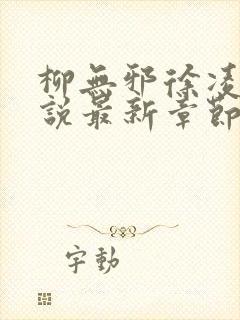 柳無邪徐凌
說最新章節
字動